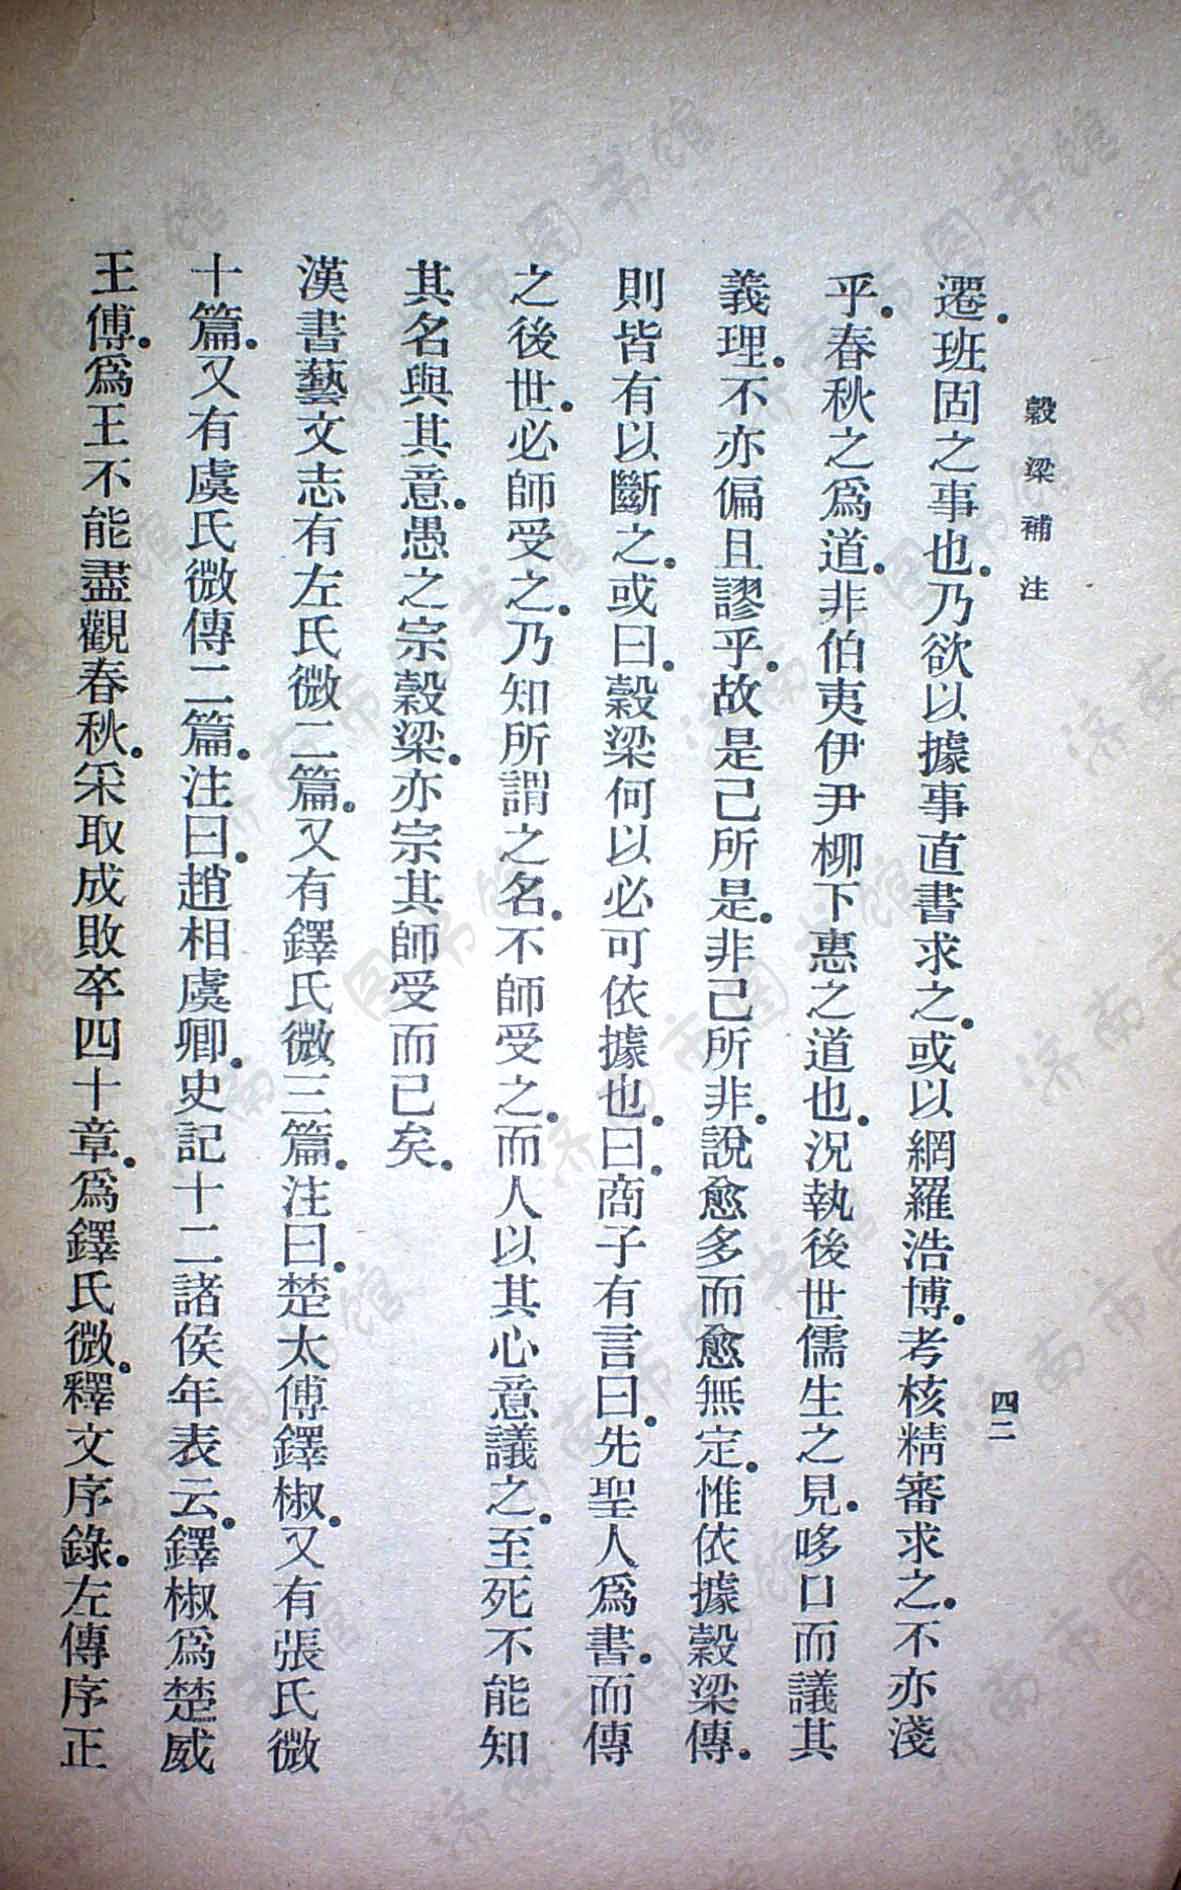 穀梁補注
四二
遷.班固之事也.乃欲以據事直書求之.或以網羅浩博.考核精審求之.不亦淺
乎.春秋之爲道.非伯夷伊尹柳下惠之道也.況執後世儒生之見.哆口而議其
義理.不亦偏且謬乎.故是己所是.非己所非.說愈多而愈無定.惟依據穀梁傳.
則皆有以斷之.或曰.穀梁何以必可依據也.曰.商子有言曰.先聖人爲書.而傳
之後世.必師受之.乃知所謂之名.不師受之.而人以其心意議之.至死不能知
其名與其意.愚之宗穀梁.亦宗其師受而已矣.
漢書藝文志有左氏微二篇.又有鐸氏微三篇.注曰.楚太傅鐸椒.又有張氏微
十篇.又有虞氏微傳二篇.注曰.趙相虞卿.史記十二諸侯年表云.鐸椒爲楚威
王傅.爲王不能盡觀春秋.采取成敗卒四十章.爲鐸氏微.釋文序錄.左傳序正
济南市图书馆